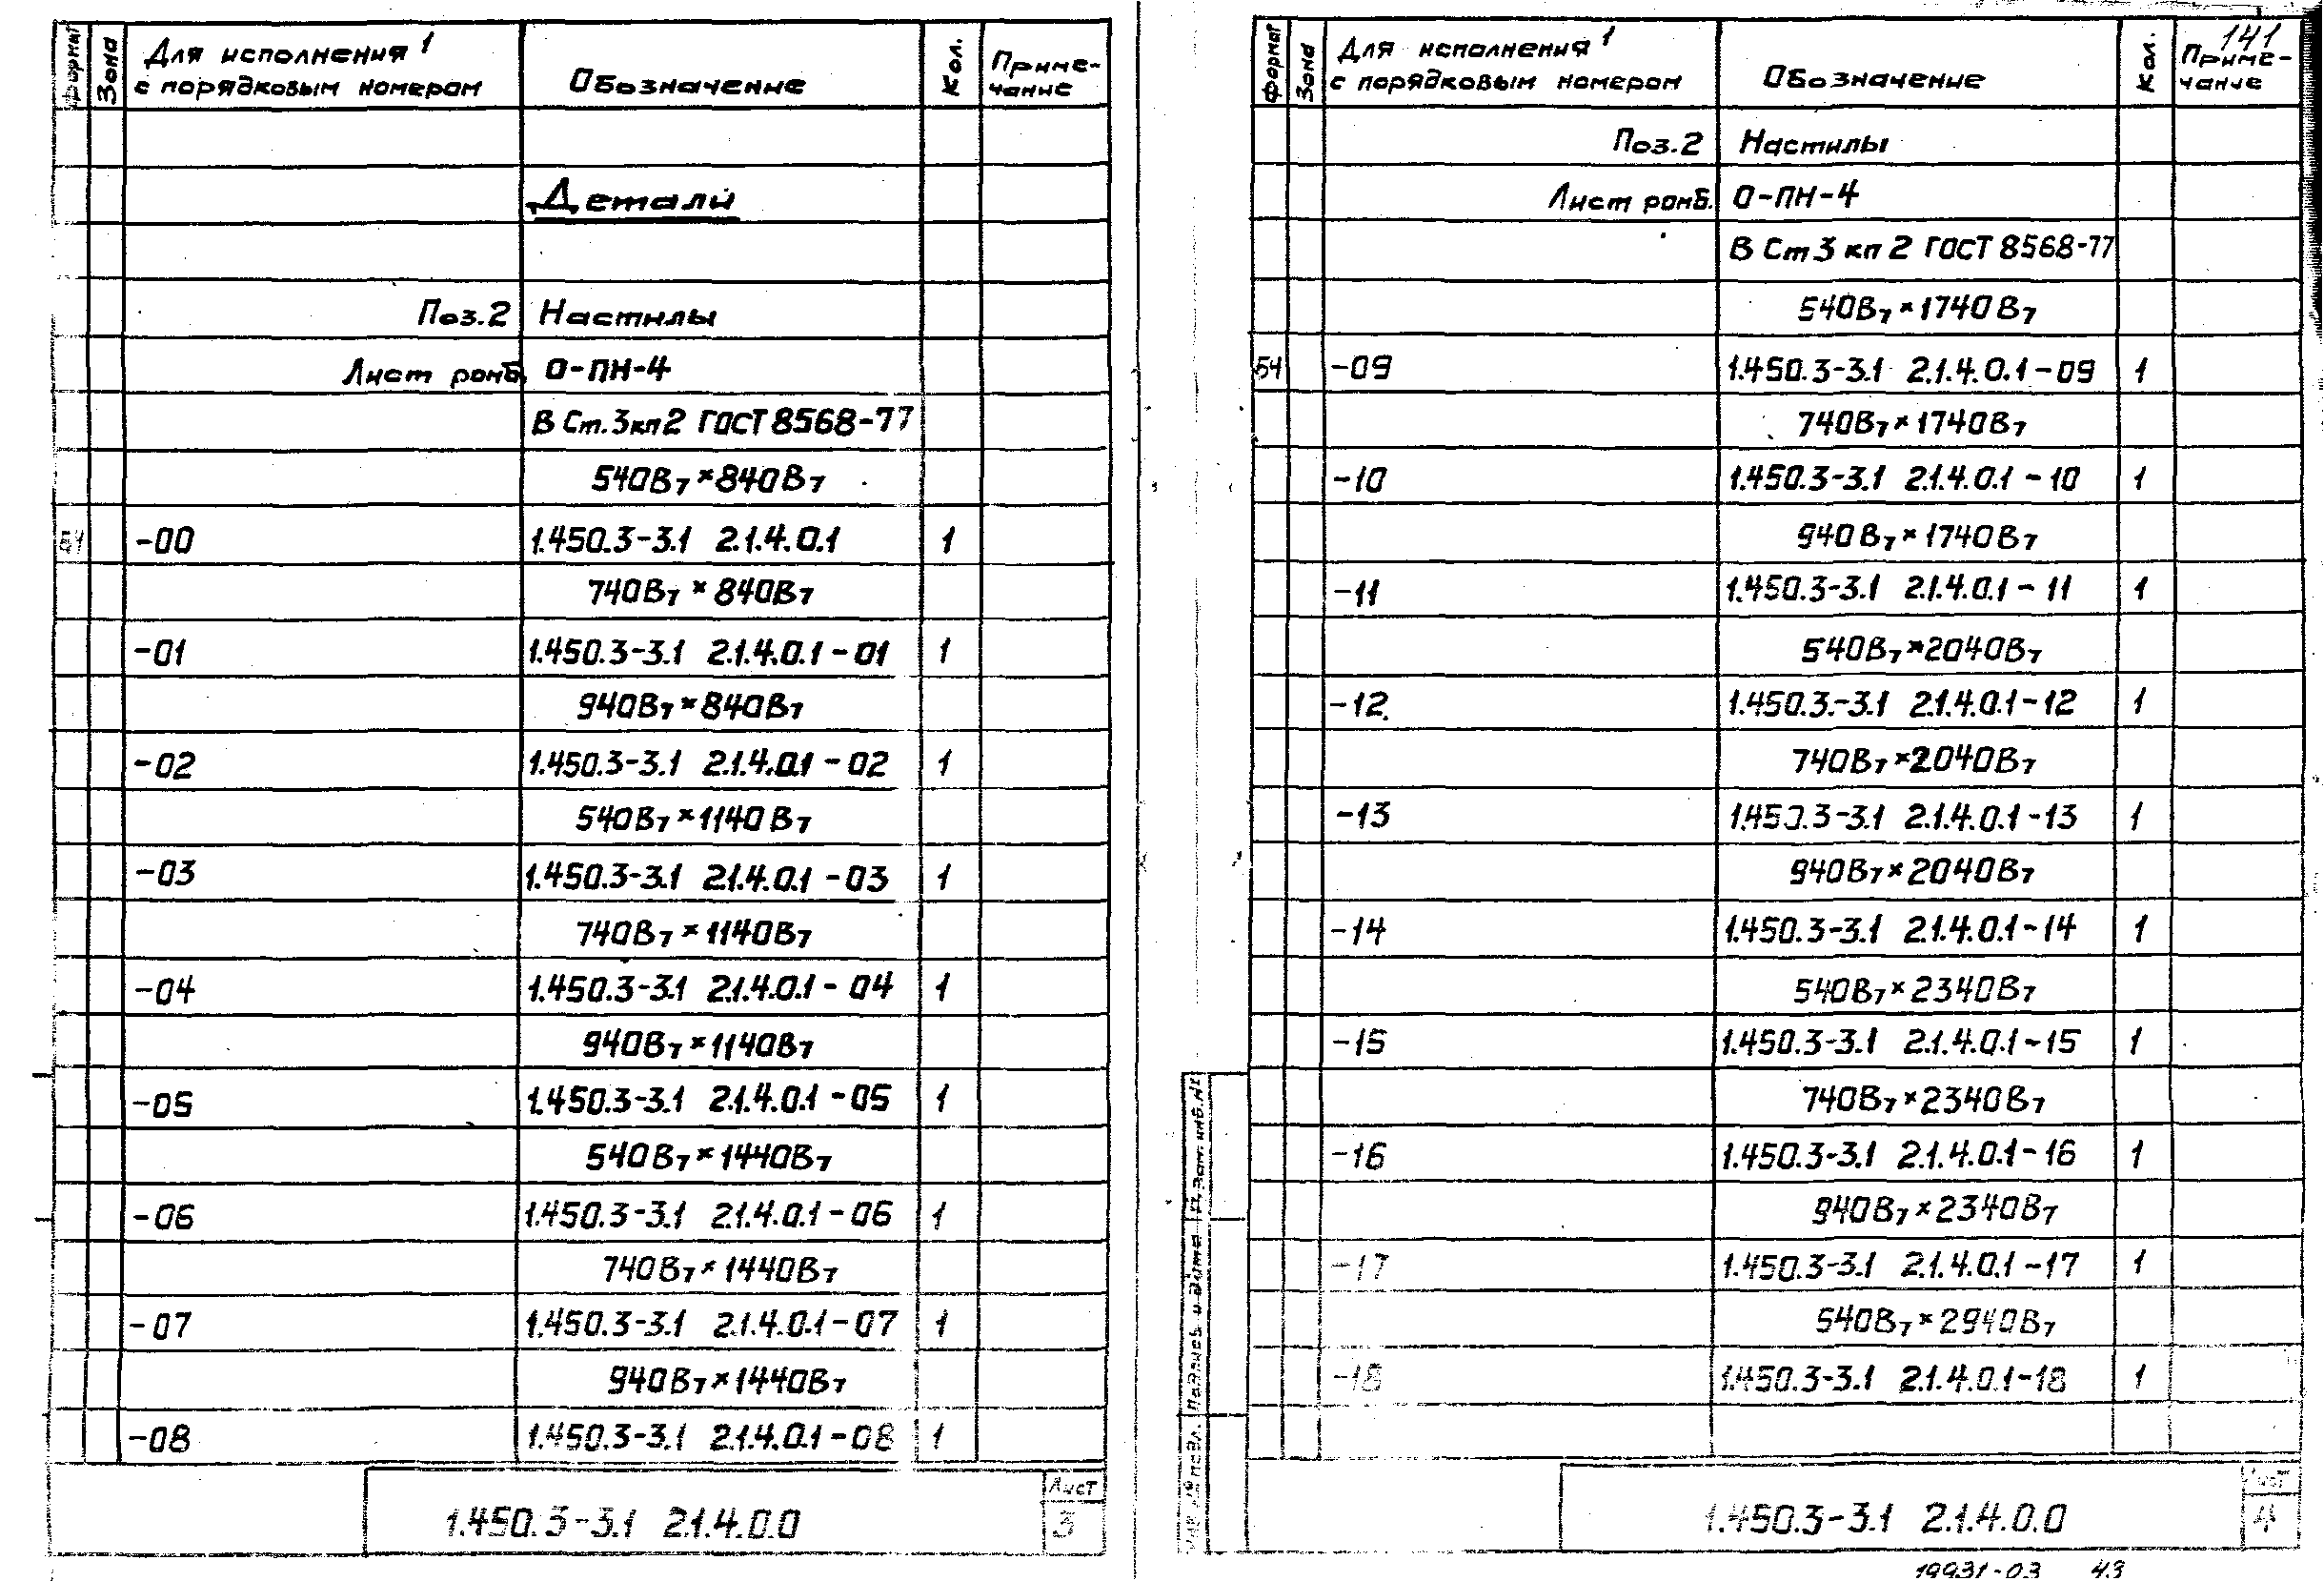 формат
Зона
Для исполнения 1
с порядковым номером
Обозначение
Кол.
Приме-
чание
Детали
Поз.2 Настилы
Лист ромб. О-ПН-4
В Ст.3кп2 ГОСТ 8568-77
540В7×840В7
-00 1.450.3-3.1 2.1.4.0.1 1
740В7×840В7
-01 1.450.3-3.1 2.1.4.0.1-01 1
940В7×840В7
-02 1.450.3-3.1 2.1.4.0.1-02 1
540В7×1140В7
-03 1.450.3-3.1 2.1.4.0.1-03 1
740В7×1140В7
-04 1.450.3-3.1 2.1.4.0.1-04 1
940В7×1140В7
-05 1.450.3-3.1 2.1.4.0.1-05 1
540В7×1440В7
-06 1.450.3-3.1 2.1.4.0.1-06 1
740В7×1440В7
-07 1.450.3-3.1 2.1.4.0.1-07 1
940В7×1440В7
-08 1.450.3-3.1 2.1.4.0.1-08 1
1.450.3-3.1 2.1.4.0.0
Лист
3
141
формат
Зона
Для исполнения 1
с порядковым номером
Обозначение
Кол.
Приме-
чание
Поз.2 Настилы
Лист ромб. О-ПН-4
В Ст3кп2 ГОСТ 8568-77
540В7×1740В7
Б4 -09 1.450.3-3.1 2.1.4.0.1-09 1
740В7×1740В7
-10 1.450.3-3.1 2.1.4.0.1-10 1
940В7×1740В7
-11 1.450.3-3.1 2.1.4.0.1-11 1
540В7×2040В7
-12 1.450.3-3.1 2.1.4.0.1-12 1
740В7×2040В7
-13 1.450.3-3.1 2.1.4.0.1-13 1
940В7×2040В7
-14 1.450.3-3.1 2.1.4.0.1-14 1
540В7×2340В7
-15 1.450.3-3.1 2.1.4.0.1-15 1
740В7×2340В7
-16 1.450.3-3.1 2.1.4.0.1-16 1
940В7×2340В7
-17 1.450.3-3.1 2.1.4.0.1-17 1
540В7×2940В7
-18 1.450.3-3.1 2.1.4.0.1-18 1
Взам. инв. №
Подпись и дата
Инв. № подл.
1.450.3-3.1 2.1.4.0.0
Лист
4
19931-03 43